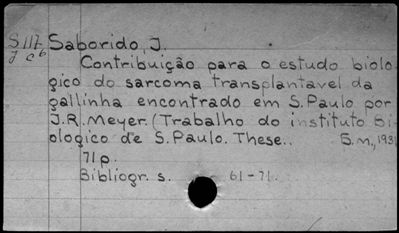 S 117, Saborido, J.
y c6
Contribuição para o estudo biolo-
gico do sarcoma transplantavel da
gallinha encontrado em S. Paulo por
J.R. Meyer. (Trabalho do instituto Bi-
ologico de S. Paulo. These.. S.n., 193
71p.
Bibliogr. s. 61-71.